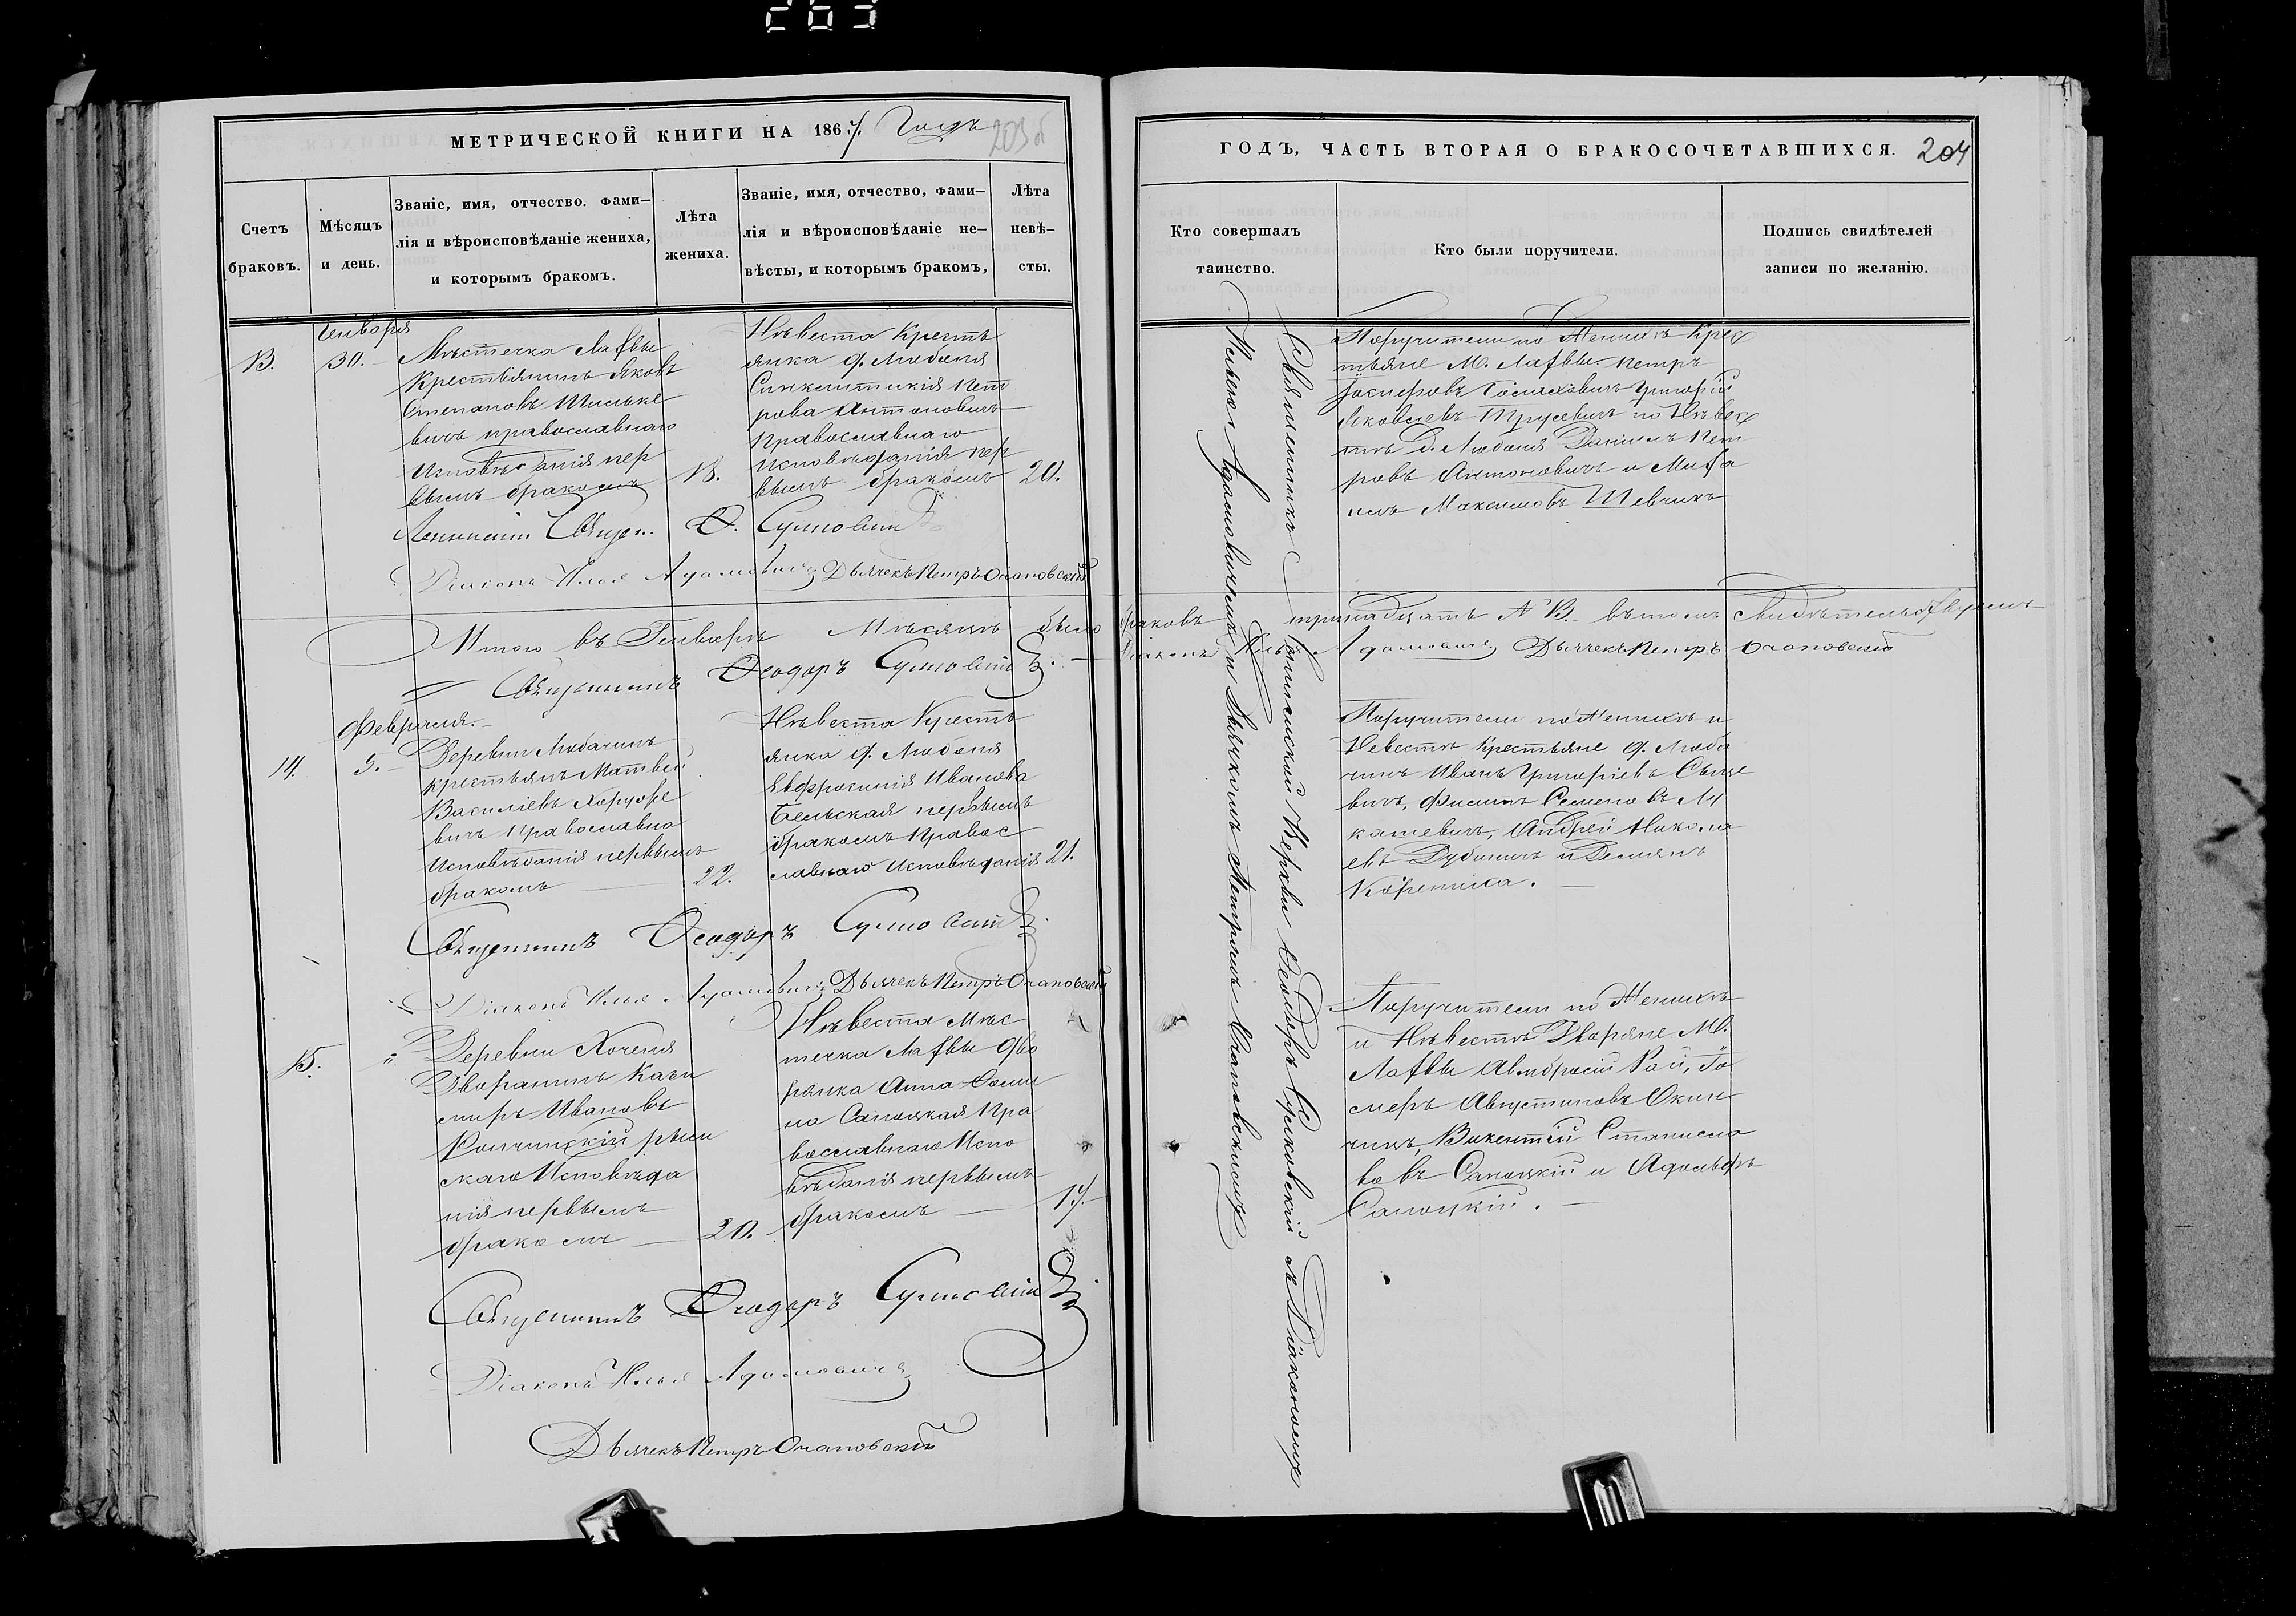 263
МЕТРИЧЕСКОЙ КНИГИ НА 1867. Годъ
203 б
Счетъ
браковъ.
Мѣсяцъ
и день.
Званіе, имя, отчество. фами–
лія и вѣроисповѣданіе жениха,
и которымъ бракомъ.
Лѣта
жениха.
Званіе, имя, отчество, фами–
лія и вѣроисповѣданіе не–
вѣсты, и которымъ бракомъ,
Лѣта
невѣ–
сты.
Генваря
13.
30.
Мѣстечка Лахвы
Крестьянинъ Яковъ
Степановъ
вичъ православнаго
Исповѣданія пер
вымъ бракомъ
18.
Нѣвеста Кресть
янка д. Любаня
Синклитикія Пет
рова Антоновичъ
Православнаго
Исповѣданія пер
вымъ бракомъ
20.
Священ. Ѳ.
Діаконъ Илья Адамовичъ Дьячекъ Петръ Очаповскій
Итого въ Генварѣ Мѣсяцѣ было браковъ тринадцать № 13. въ томъ свидѣтельствуемъ
Священникъ Ѳеодоръ
Діаконъ Илья Адамовичъ Дьячекъ Петръ Очаповскій
Февраля.
14.
5.
Деревни Любачинъ
крестьянъ Матвей
Василіевъ
вичъ Православна
Исповѣданія первымъ
бракомъ
22.
Нѣвеста Кресть
янка д. Любаня
Евфросинія Иванова
Бельская первымъ
бракомъ Правос
лавнаго Исповѣданія
21.
Священникъ Ѳеодоръ
Діаконъ Илья Адамовичъ Дьячекъ Петръ Очаповскій
15.
"
Деревни Хоченя
Дворанинъ Кази
миръ Ивановъ
рым
скаго Исповѣда
нія первымъ
бракомъ
20.
Нѣвеста Мѣс
течка Лахвы Дво
рянка Анна
на Сапоцкая Пра
вославнаго Испо
вѣданія первымъ
бракомъ
17.
Священникъ Ѳеодоръ
Діаконъ Илья Адамовичъ
Дьячекъ Петръ Очаповскій
ГОДЪ, ЧАСТЬ ВТОРАЯ О БРАКОСОЧЕТАВШИХСЯ.
204
Кто совершалъ
таинство.
Кто были поручители.
Подпись свидѣтелей
записи по желанію.
Священникъ Церкви Ѳеодоръ съ Діакономъ
Ильею Адамовичемъ и Дьячкомъ Петромъ Очаповскимъ
Поручители по Женихѣ Крес
тьяне М. Лахвы Петръ
Іосифовъ Григорій
Яковлевъ Трусевичъ по Нѣвес
тѣ Д. Любаня Даніилъ Пет
ровъ Антоновичъ и Миха
илъ Максимовъ Шевчикъ
Поручители по Женихѣ и
Невестѣ Крестьяне д. Люба
чинъ Иванъ Григоріевъ
вичъ, Филипъ Семеновъ Лу
кашевичъ, Андрей Никола
евъ и Демянъ
Поручители по Женихѣ
и Нѣвестѣ Дворяне М.
Лахвы Амбросій Рай, Іо
сифъ Августиновъ Окин
чицъ, Викентій Станисла
вовъ Сапоцкій и Адольфъ
Сапоцкій.